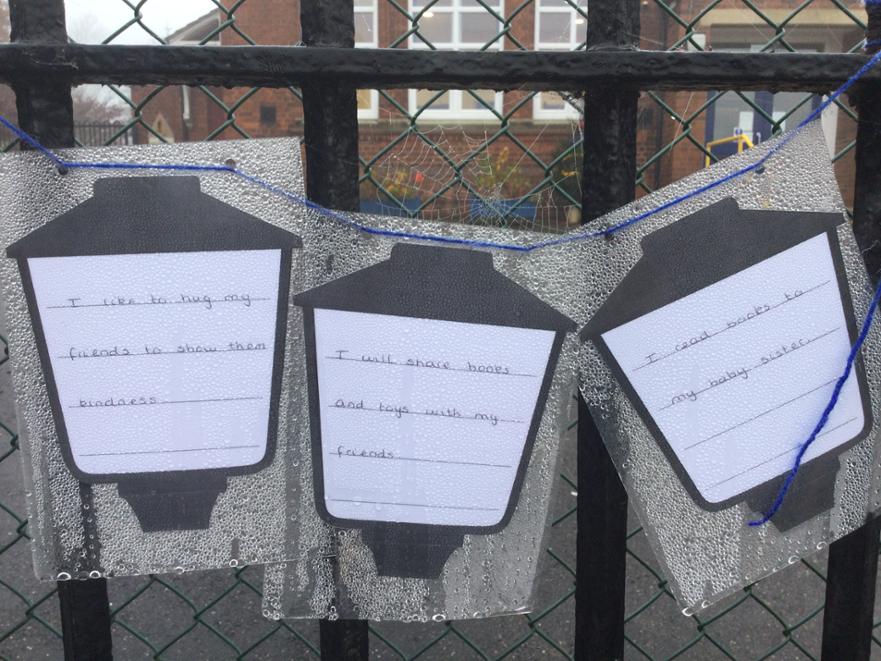 I like to hug my
friends to show them
kindness
I will share books
and toys with my
friends
I read books to
my baby sister.